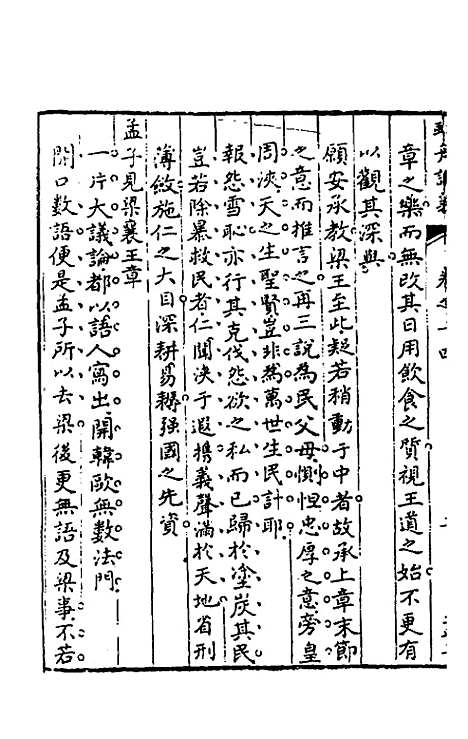 章之樂而無改其日用飲食之質視王道之始不更有
以觀其深與
願安承教梁王至此疑若稍動于中者故承上章末節
之意而推言之再三說為民父母惻怛忠厚之意旁皇
周浹天之生聖賢豈非為萬世生民計耶
報怨雪恥亦行其克伐怨欲之私而已歸於塗炭其民
豈若除暴救民者仁聞決于遐攜義聲滿於天地省刑
薄斂施仁之大目深耕易耨强國之先資
孟子見梁襄王章
一片大議論都以語人寫出開韓歐無數法門
開口數語便是孟子所以去梁後更無語及梁事不若